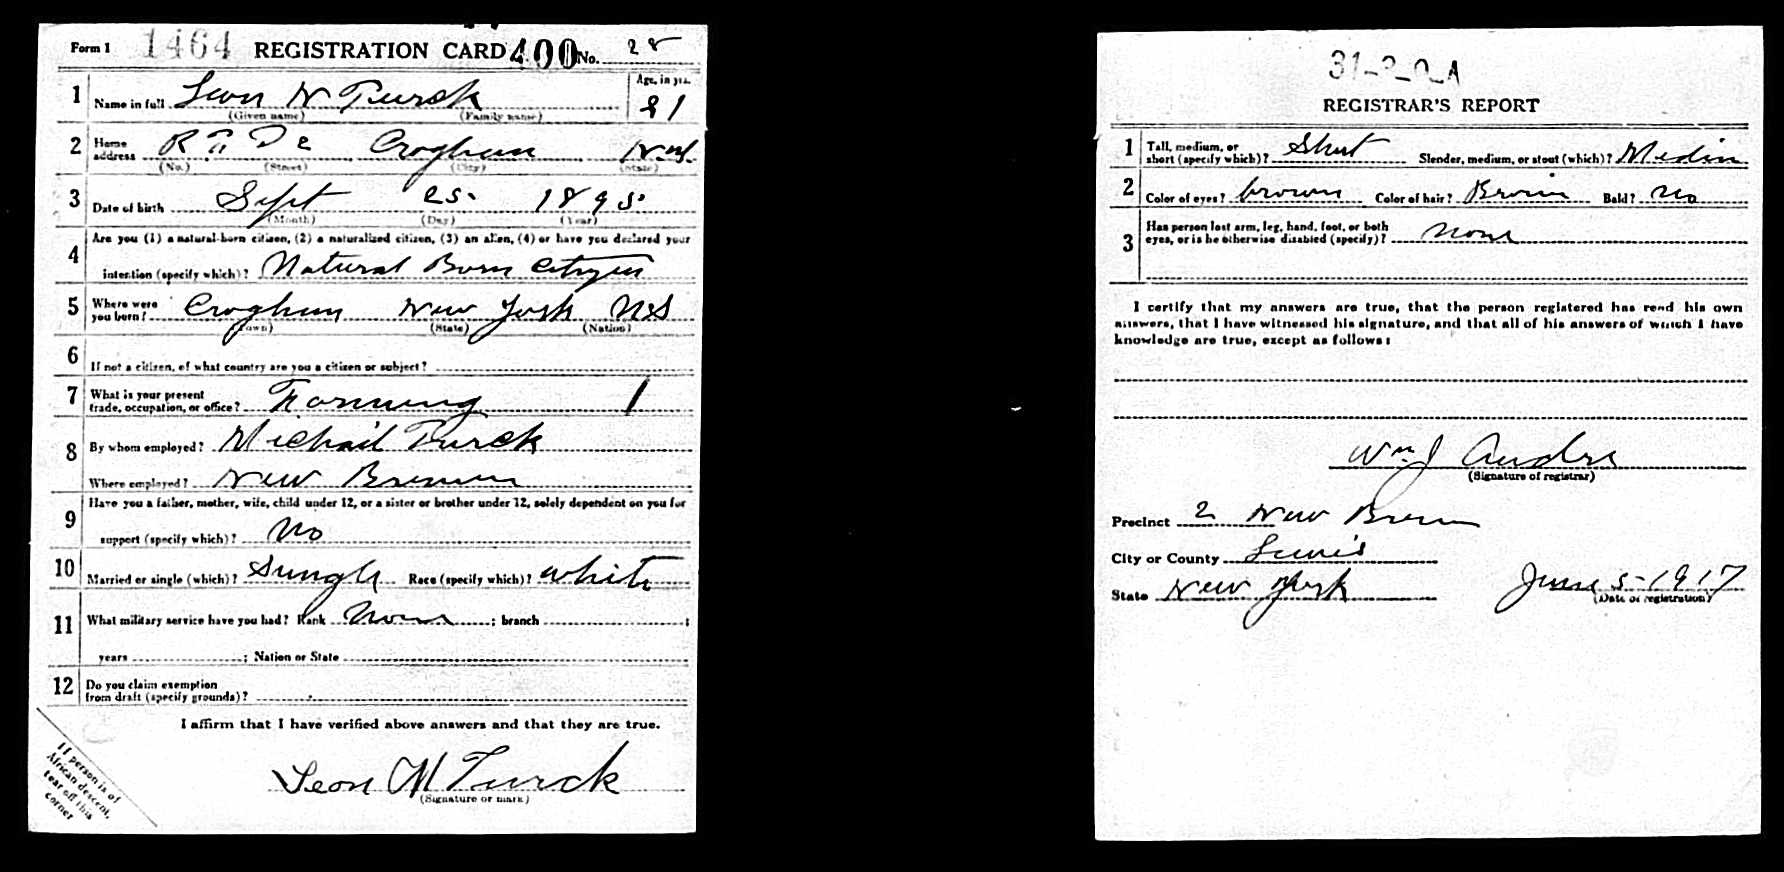 Form 1 1464 REGISTRATION CARD 400 No. 28
1 Name in full Leon N Turck Age, in yrs. 21
(Given name) (Family name)
2 Home address R F D 2 Croghan N.Y.
(No.) (Street) (City) (State)
3 Date of birth Sept 25. 1895
(Month) (Day) (Year)
4 Are you (1) a natural-born citizen, (2) a naturalized citizen, (3) an alien, (4) or have you declared your
intention (specify which)? Natural Born Citizen
5 Where were you born? Croghan New York US
(Town) (State) (Nation)
6 If not a citizen, of what country are you a citizen or subject?
7 What is your present
trade, occupation, or office? Farming 1
8 By whom employed? Michail Turck
Where employed? New Bremen
9 Have you a father, mother, wife, child under 12, or a sister or brother under 12, solely dependent on you for
support (specify which)? No
10 Married or single (which)? Single Race (specify which)? White
11 What military service have you had? Rank None ; branch ;
years ; Nation or State
12 Do you claim exemption
from draft (specify grounds)?
I affirm that I have verified above answers and that they are true.
Leon M Turck
(Signature or mark)
If person is of
African descent,
tear off this
corner
REGISTRAR'S REPORT
1 Tall, medium, or
short (specify which)? Short Slender, medium, or stout (which)? Medium
2 Color of eyes? brown Color of hair? Brown Bald? No
3 Has person lost arm, leg, hand, foot, or both
eyes, or is he otherwise disabled (specify)? None
I certify that my answers are true, that the person registered has read his own
answers, that I have witnessed his signature, and that all of his answers of which I have
knowledge are true, except as follows:
Wm J Andre
(Signature of registrar)
Precinct 2 New Bremen
City or County Lewis
State New York June 5-1917
(Date of registration)